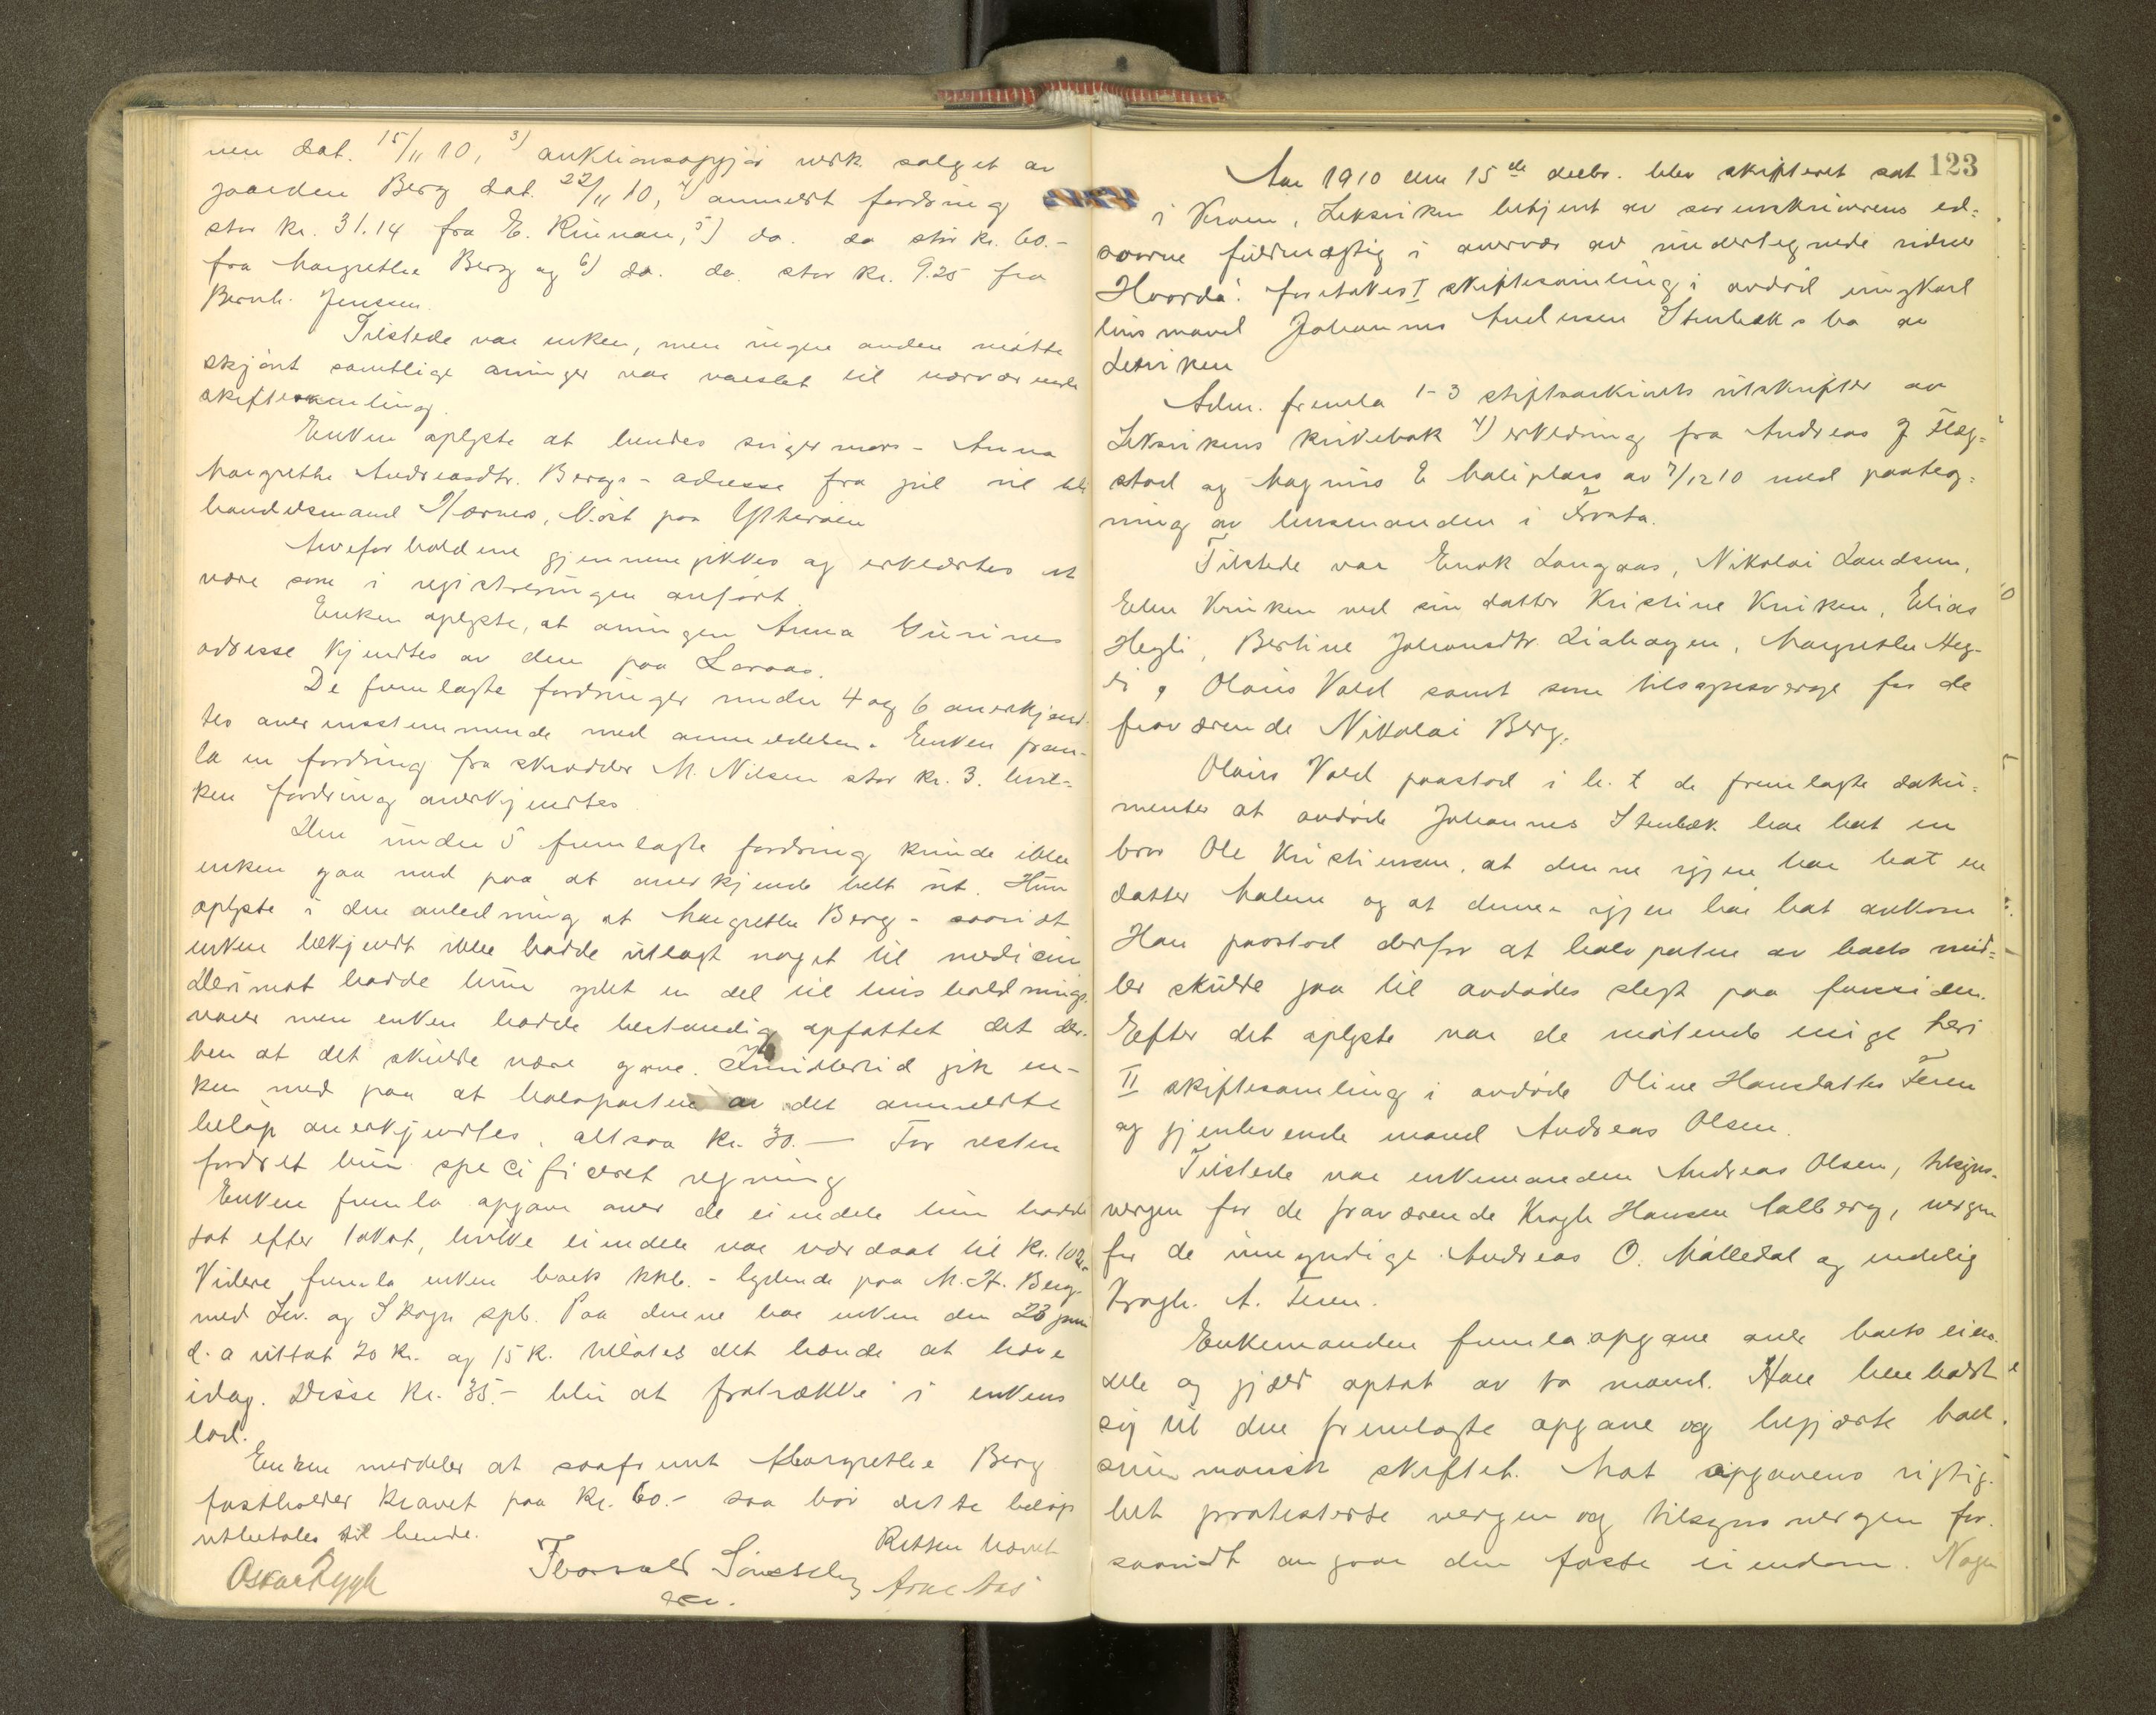 nen dat. 15/11 10, 3) auktionsopgjør vedk. salget av
gaarden Berg dat. 22/11 10, 4) anmeldt fordring
stor kr. 31.14 fra E. Rinnan, 5) do. do stor kr. 60.-
fra Margrethe Berg og 6) do. do. stor kr. 9.25 fra
Bernh. Jenssen.
Tilstede var enken, men ingen anden møtte
skjønt samtlige arvinger var varslet til nærværende
skiftesamling.
Enken oplyste at hendes svigermors - Anna
Margrethe Andreasdtr. Bergs - adresse fra jul vil bli
handelsmand Hornes, Røst paa Ytterøen
Arveforholdene gjennemgikkes og erklærtes at
være som i registreringen anført.
Enken oplyste, at arvingen Anna Gurines
adresse kjendtes av den paa Lovaas.
De fremlagte fordringer under 4 og 6 anerkjend-
tes overensstemmende med anmeldelsen. Enken frem-
la en fordring fra skrædder M. Nilsen stor kr. 3. hvil-
ken fordring anerkjendtes.
Den under 5 fremlagte fordring kunde ikke
enken gaa med paa at anerkjende helt ut. Hun
oplyste i den anledning at Margrethe Berg - saavidt
enken bekjendt ikke hadde utlagt noget til medicin
Derimot hadde hun ydet en del til husholdnings-
varer men enken hadde bestandig opfattet det der-
hen at det skulde være gave. Imidlertid gik en-
ken med paa at halvparten av det anmeldte
beløp anerkjendtes, altsaa kr. 30.— For resten
fordret hun specificeret regning
Enken fremla opgave over de eiendele hun hadde
tat efter takst, hvilke eiendele var værdsat til kr. 102.-
Videre fremla enken boets kkb. - lydende paa M. H. Berg
med Lev. og Skogn spb. Paa denne har enken den 23 juni
d. a uttat 20 kr. og 15 k. tillates det hende at hæve
idag. Disse kr. 35.- blir at fratrække i enkens
lod.
Enken meddeler at saafremt Margrethe Berg
fastholder kravet paa kr. 60.- saa bør dette beløp
utbetales til hende.
Retten hævet
Oskar Rygh Thorvald
Arne Aas

123
Aar 1910 den 15de decbr. blev skifteret sat
i Kroen, Leksviken betjent av sorenskriverens ed-
svorne fuldmægtig i overvær av undertegnede vidner
Hvorda: foretokes I skiftesamling i avdød ungkarl
lins mand Johannes Andersen Stenbæks bo av
Leksviken
Adm. fremla 1-3 stiftsarkivets utskrifter av
Leksvikens kirkebok 4) erklæring fra Andreas J Flag-
stad og Magnus E Haliplass av 7/12 10 med paateg-
ning av lensmanden i Frosta.
Tilstede var Enok Langaas, Nikolai Landsem,
Elen Kruken ved sin datter Kristine Kruken, Elias
Hegli, Bertine Johansdtr. Liahagen, Margrethe Heg-
li, Olaus Vold samt som tilsynsverge for de
fraværende Nikolai Berg.
Olaus Vold paastod i h. t de fremlagte doku-
menter at avdøde Johannes Stenbæk har hat en
bror Ole Kristiansen, at denne igjen har hat en
datter Malene og at denne igjen har hat avkom
Han paastod derfor at halvparten av boets mid-
ler skulde gaa til avdødes slegt paa farssiden.
Efter det oplyste var de møtende enige heri
II skiftesamling i avdøde Oline Hansdatter Feren
og gjenlevende mand Andreas Olsen.
Tilstede var enkemanden Andreas Olsen, tilsyns-
vergen for de fraværende Kragh Hansen Salberg, vergen
for de umyndige Andreas O. Målledal og endelig
Kragh. A. Feren.
Enkemanden fremla opgave over boets eien-
dele og gjæld optat av to mænd. Han henholdt
sig til den fremlagte opgave og begjærte boet
summarisk skiftet. Mot opgavens rigtig-
het protesterte vergen og tilsynsvergen for-
saavidt angaar den faste eiendom. Nogen